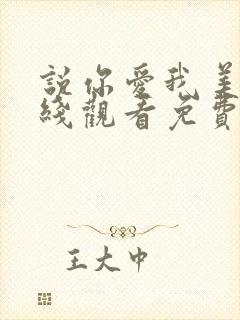 說你愛我美
綫觀看免費
王大中